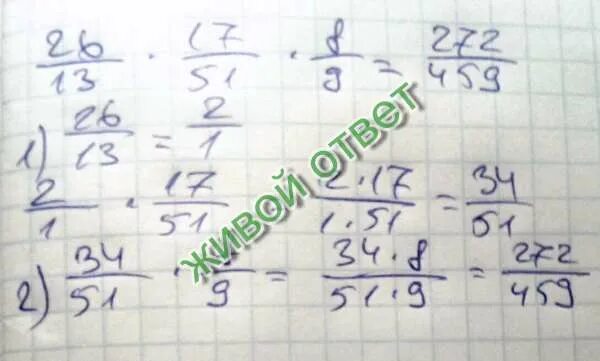 26/13 · 17/51 · 8/9 = 272/459
1) 26/13 = 2/1
2/1 · 17/51 2·17/1·51 = 34/51
2) 34/51 · /9 = 34·8/51·9 = 272/459
ЖИВОЙ ОТВЕТ